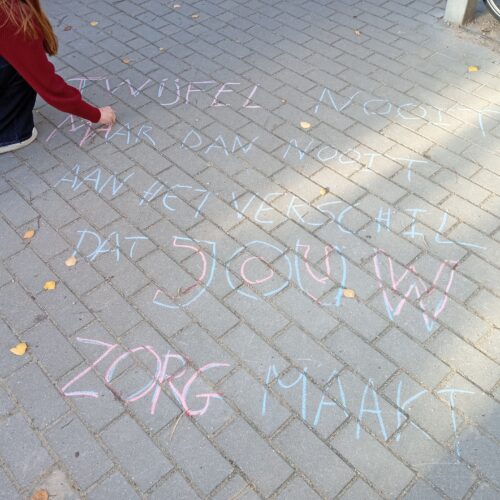 TWIJFEL NOOIT
MAAR DAN NOOIT
AAN HET VERSCHIL
DAT JOUW
ZORG MAAKT